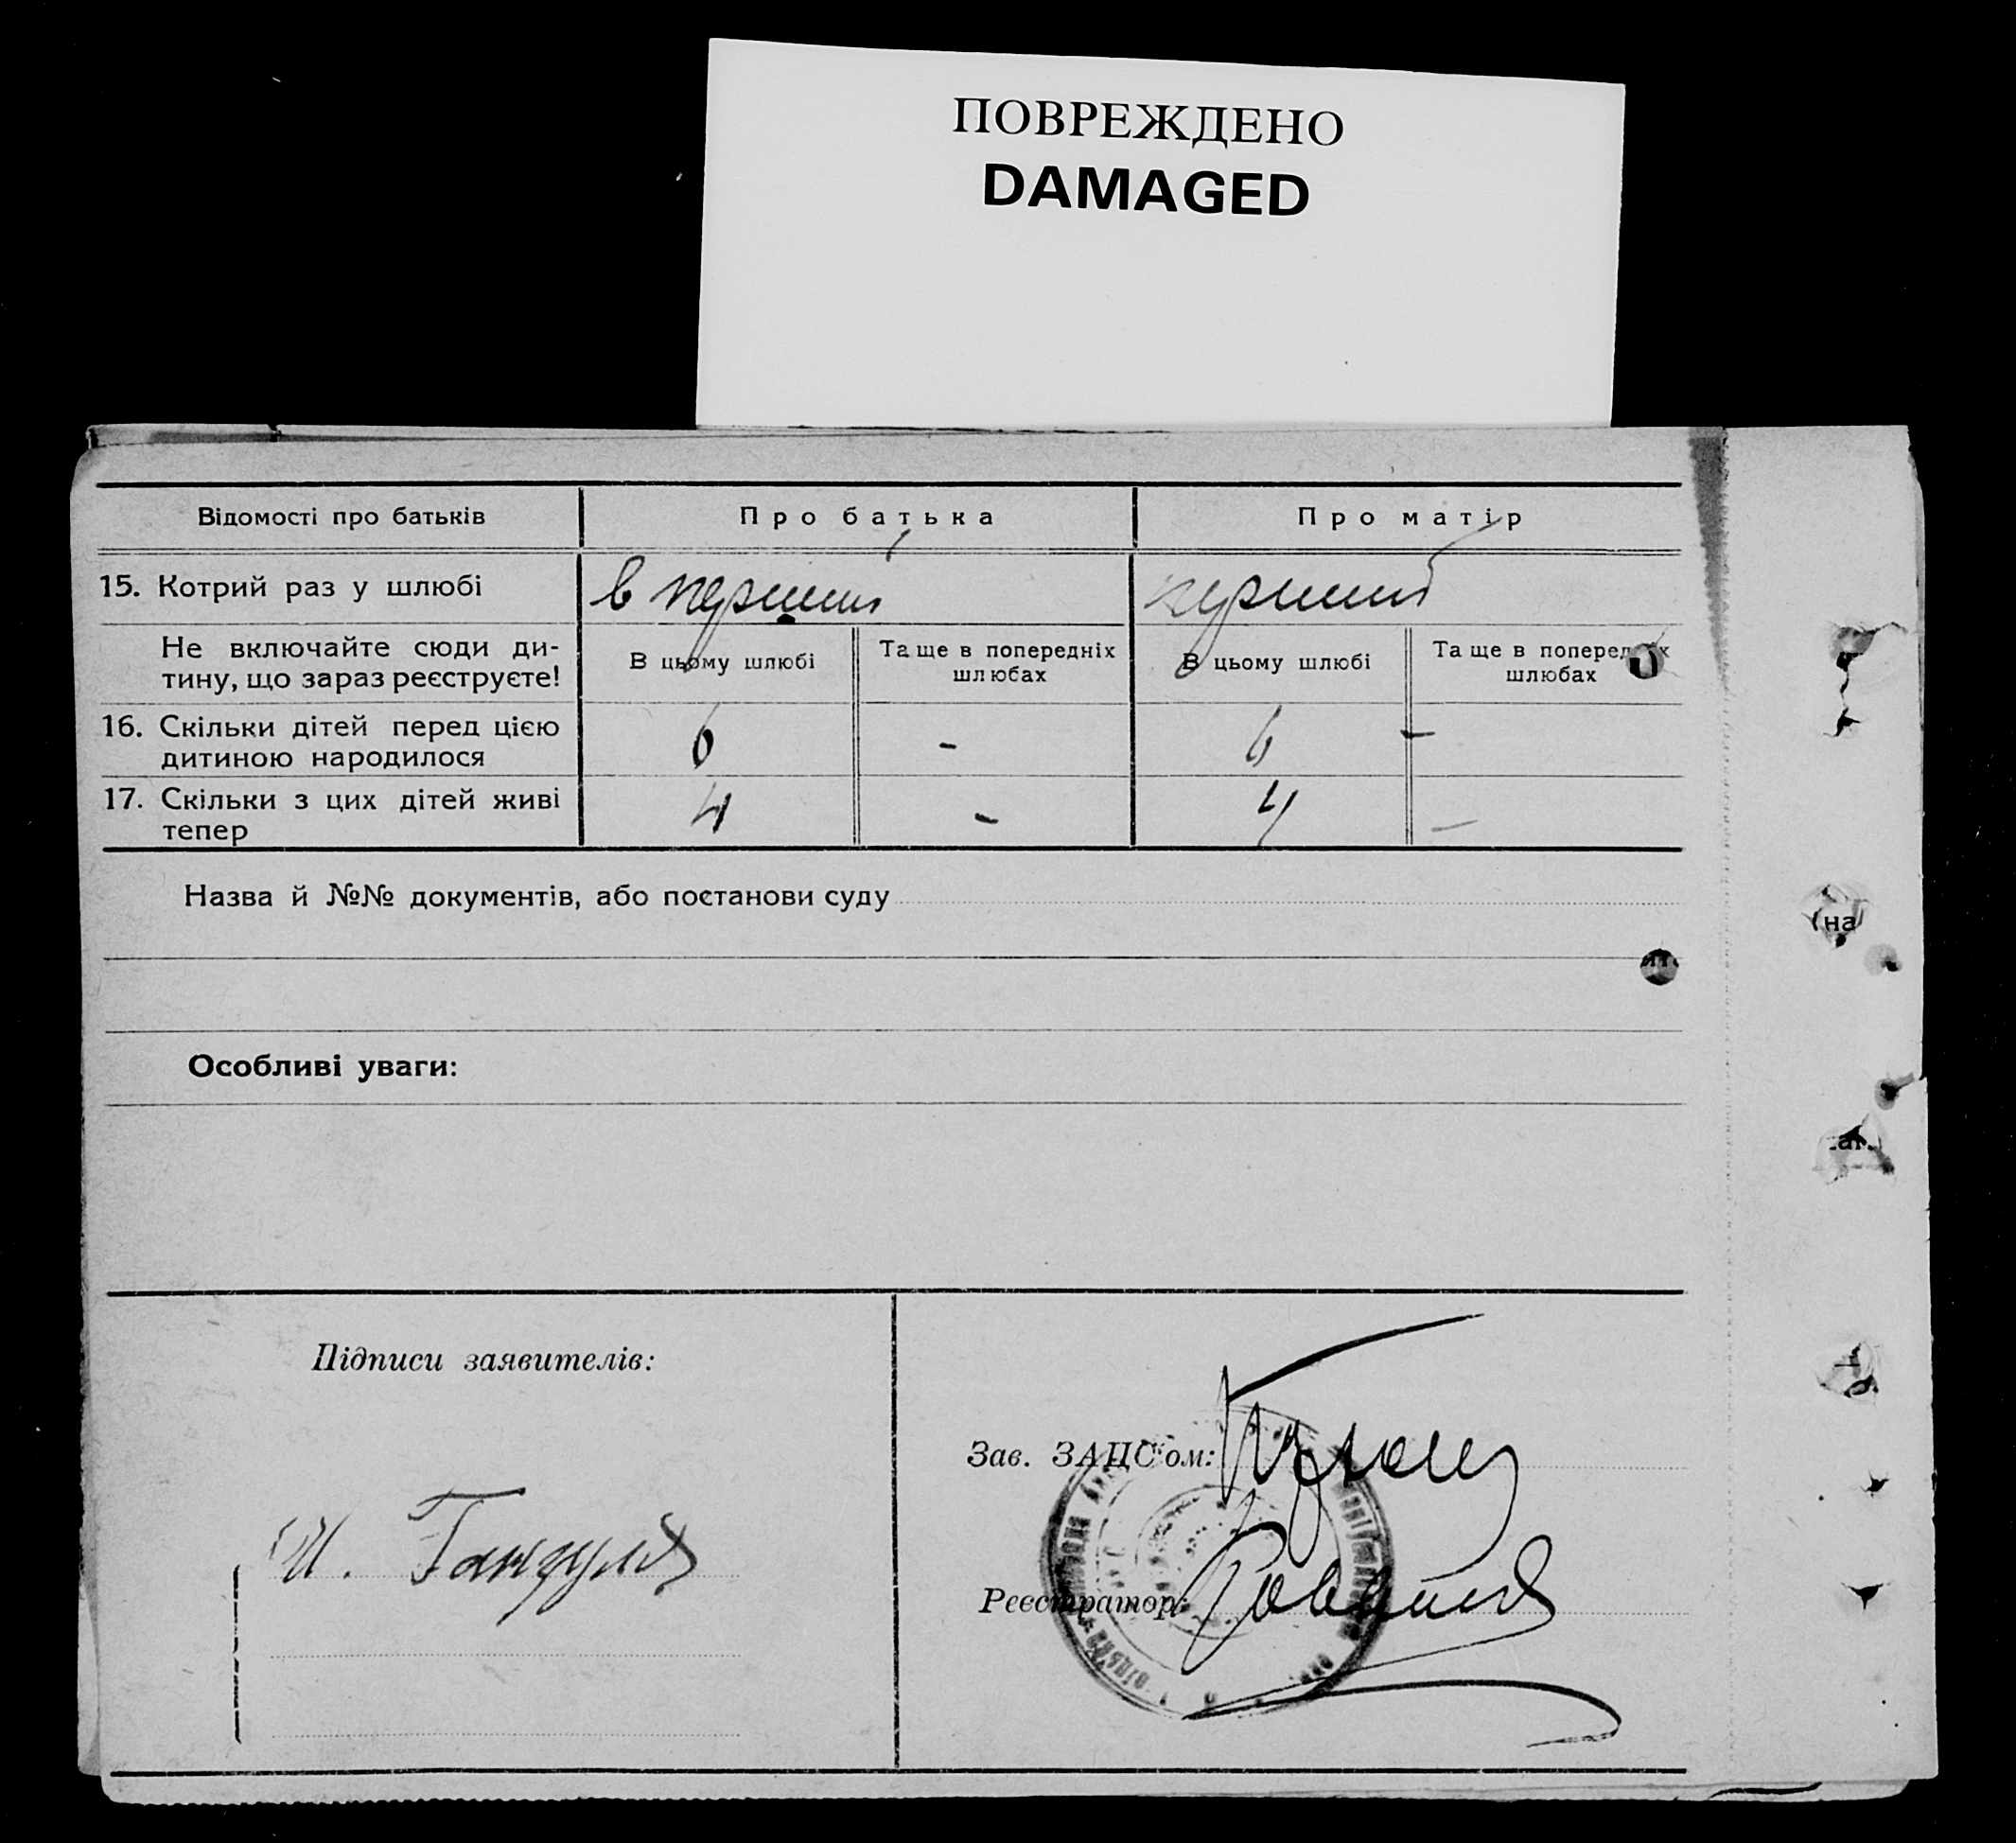 ПОВРЕЖДЕНО
DAMAGED
Відомості про батьків
Про батька
Про матір
15. Котрий раз у шлюбі
в перший
перший
Не включайте сюди ди-
тину, що зараз реєструєте!
В цьому шлюбі
Та ще в попередніх
шлюбах
В цьому шлюбі
Та ще в поперед х
шлюбах
16. Скільки дітей перед цією
дитиною народилося
6
-
6
-
17. Скільки з цих дітей живі
тепер
4
-
4
-
Назва й №№ документів, або постанови суду
(на)
Особливі уваги:
Підписи заявителів:
Зав. ЗАПС'ом:
И.
Реєстратор: